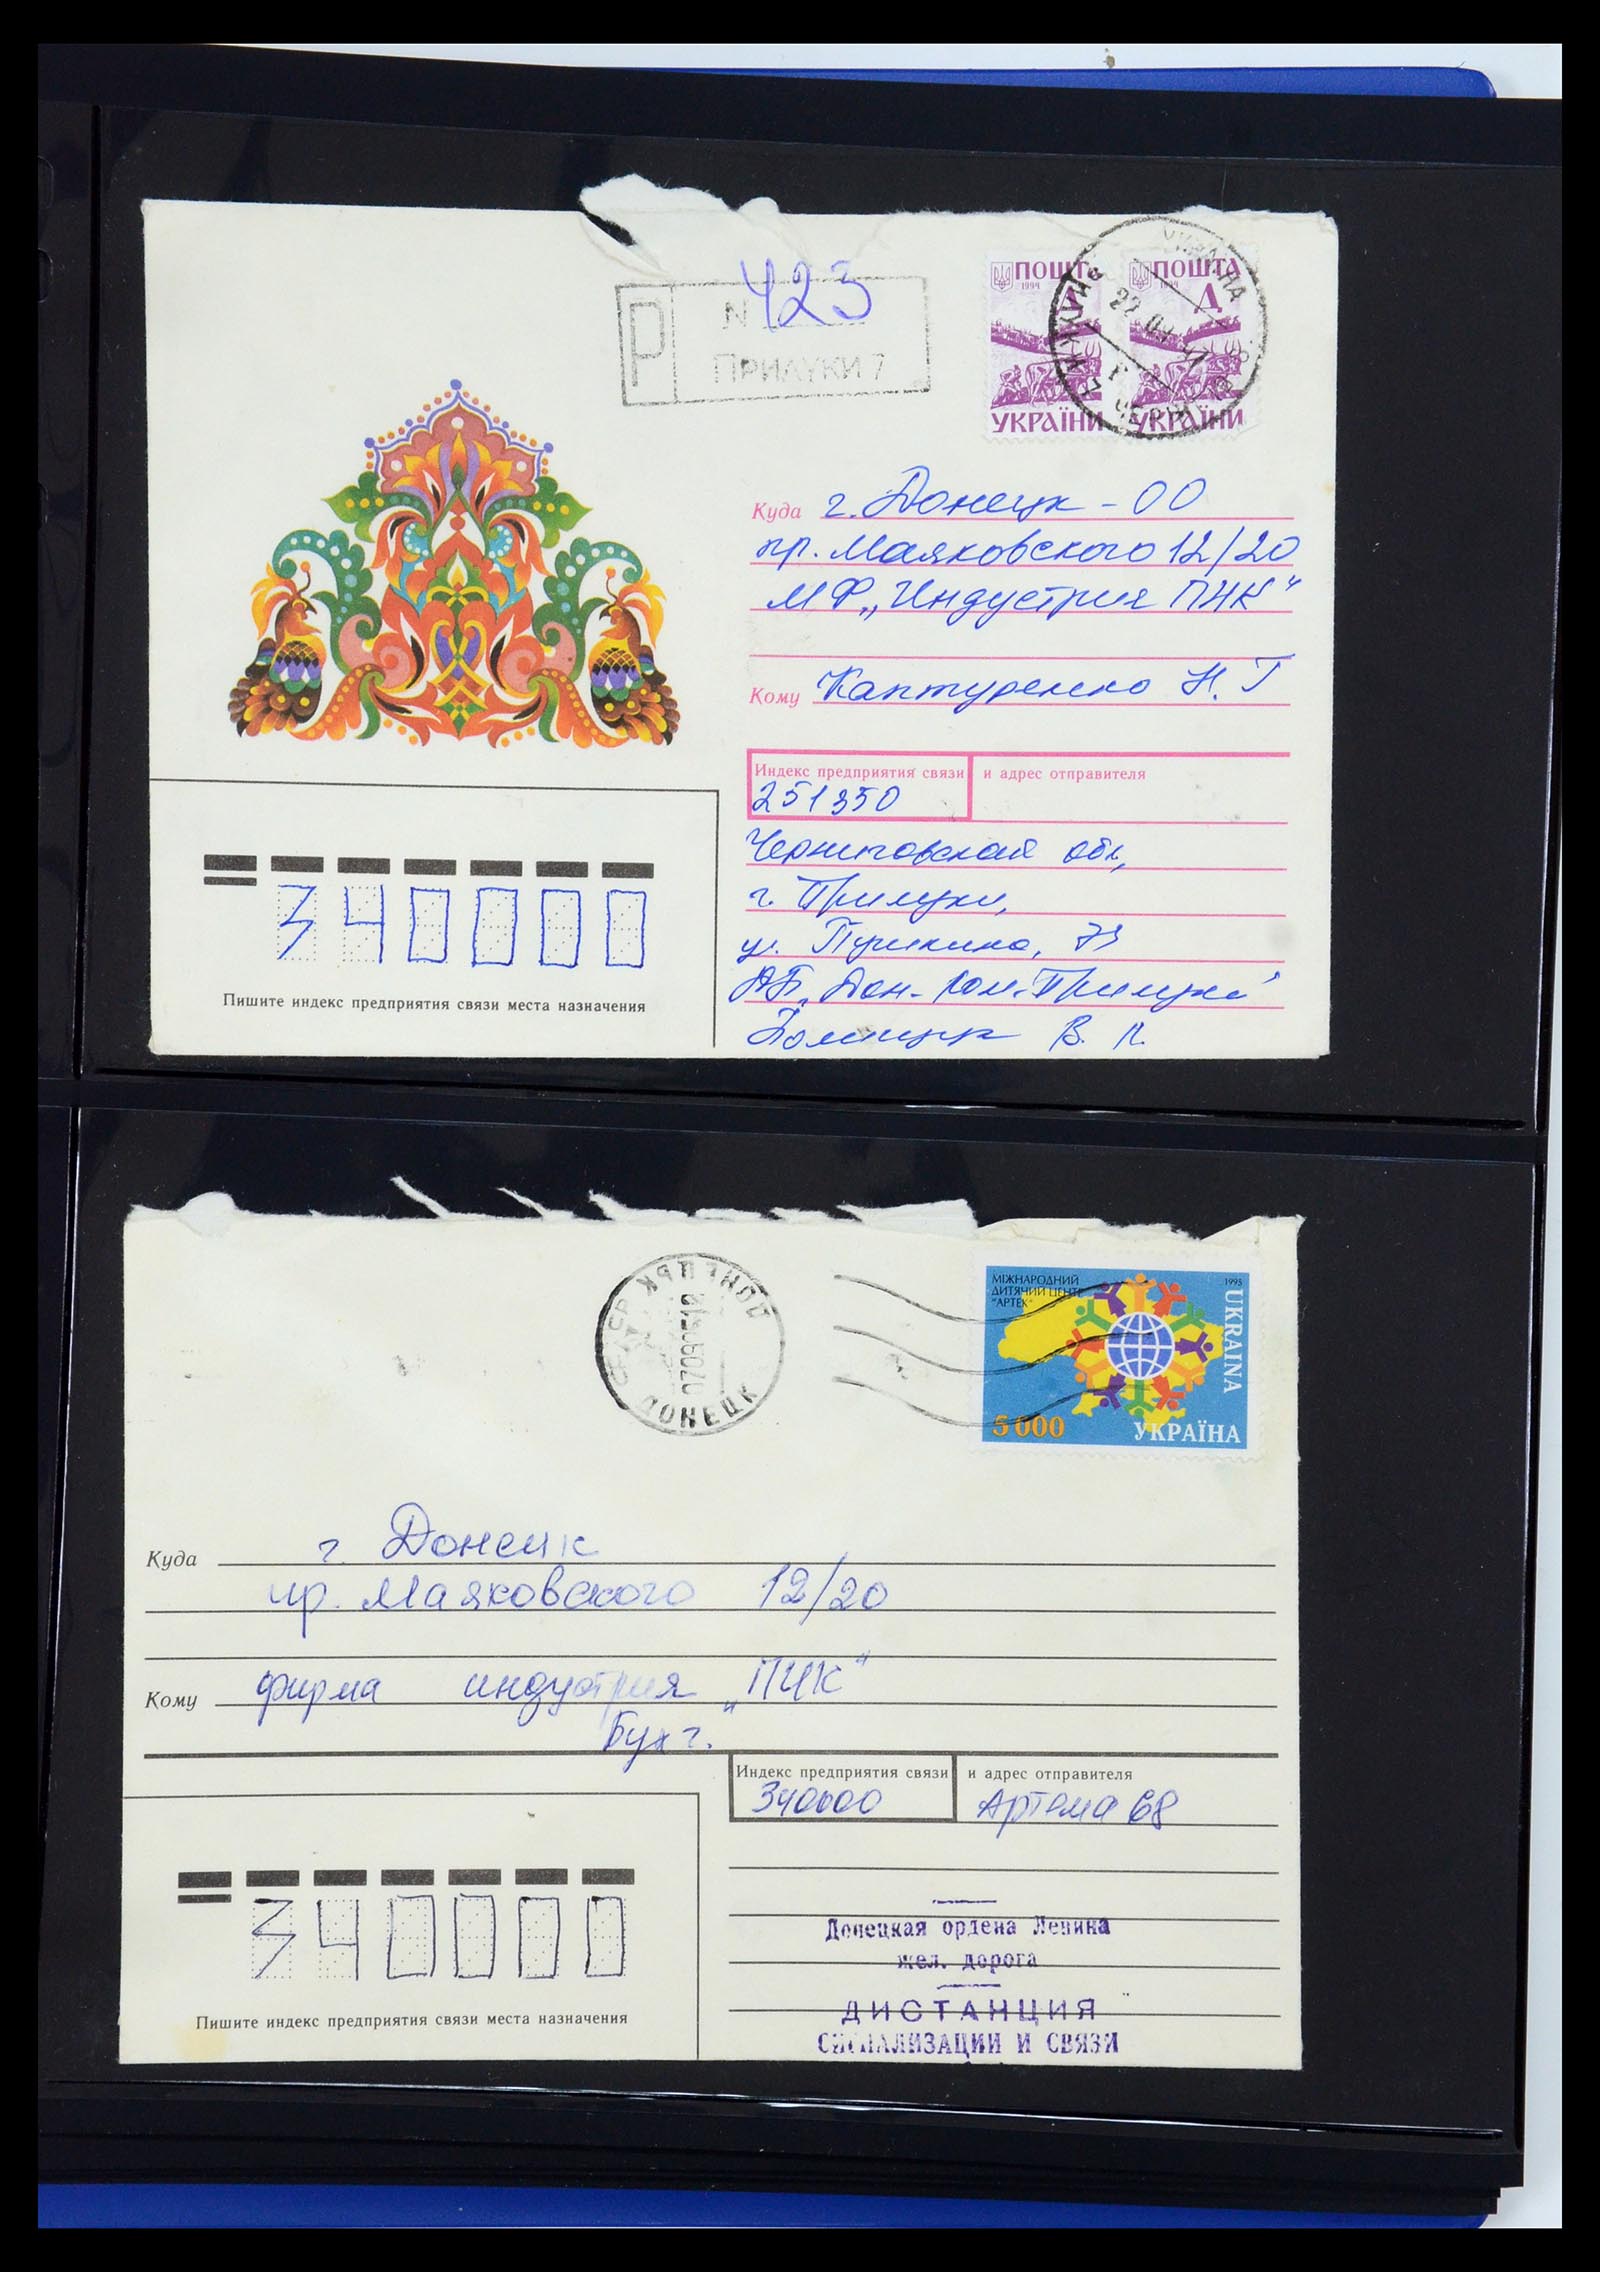 № 423
Р
ПРИЛУКИ 7
ПОШТА
1994
Д
УКРАЇНИ
ПОШТА
Д
УКРАЇНИ
Куда г. Донецк - 00
пр. Маяковского 12/20
МФ „Индустрия ПИК"
Кому Каптуренко Н. Г
Индекс предприятия связи и адрес отправителя
251350
Черниговская обл,
г. Прилуки,
ул. Пушкина,
Пишите индекс предприятия связи места назначения
340000
МІЖНАРОДНИЙ
ДИТЯЧИЙ ЦЕНТР
"АРТЕК"
1995
UKRAINA
5 000
УКРАЇНА
ДОНЕЦК
Куда г. Донецк
пр. Маяковского 12/20
Кому фирма индустрия „ПИК"
Бухг.
Индекс предприятия связи и адрес отправителя
340000 Артема 68
Донецкая ордена Ленина
жел. дорога
ДИСТАНЦИЯ
СИГНАЛИЗАЦИИ И СВЯЗИ
340000
Пишите индекс предприятия связи места назначения